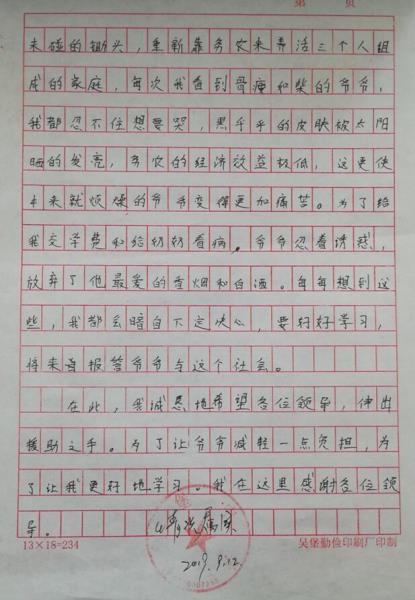 第 页
未碰的锄头，重新靠务农来养活三个人组
成的家庭，每次我看到骨瘦和柴的爷爷，
我都忍不住想要哭，黑乎乎的皮肤被太阳
晒的发亮，务农的经济效益极低，这更使
本来就烦燥的爷爷变得更加痛苦。为了给
我交学费和给奶奶看病，爷爷忍着诱惑，
放弃了他最爱的香烟和白酒。每每想到这
些，我都会暗自下定决心，要好好学习，
将来再报答爷爷与这个社会。
在此，我诚恳地希望各位领导，伸出
援助之手。为了让爷爷减轻一点负担，为
了让我更好地学习。我在这里感谢各位领
导。
情况属实
2019.9.12.
13×18=234
吴堡勤俭印刷厂印制